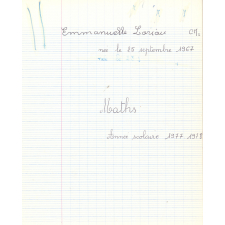 Emmanuelle Loriau
née le 25 septembre 1967
Maths
Année scolaire 1977 1978